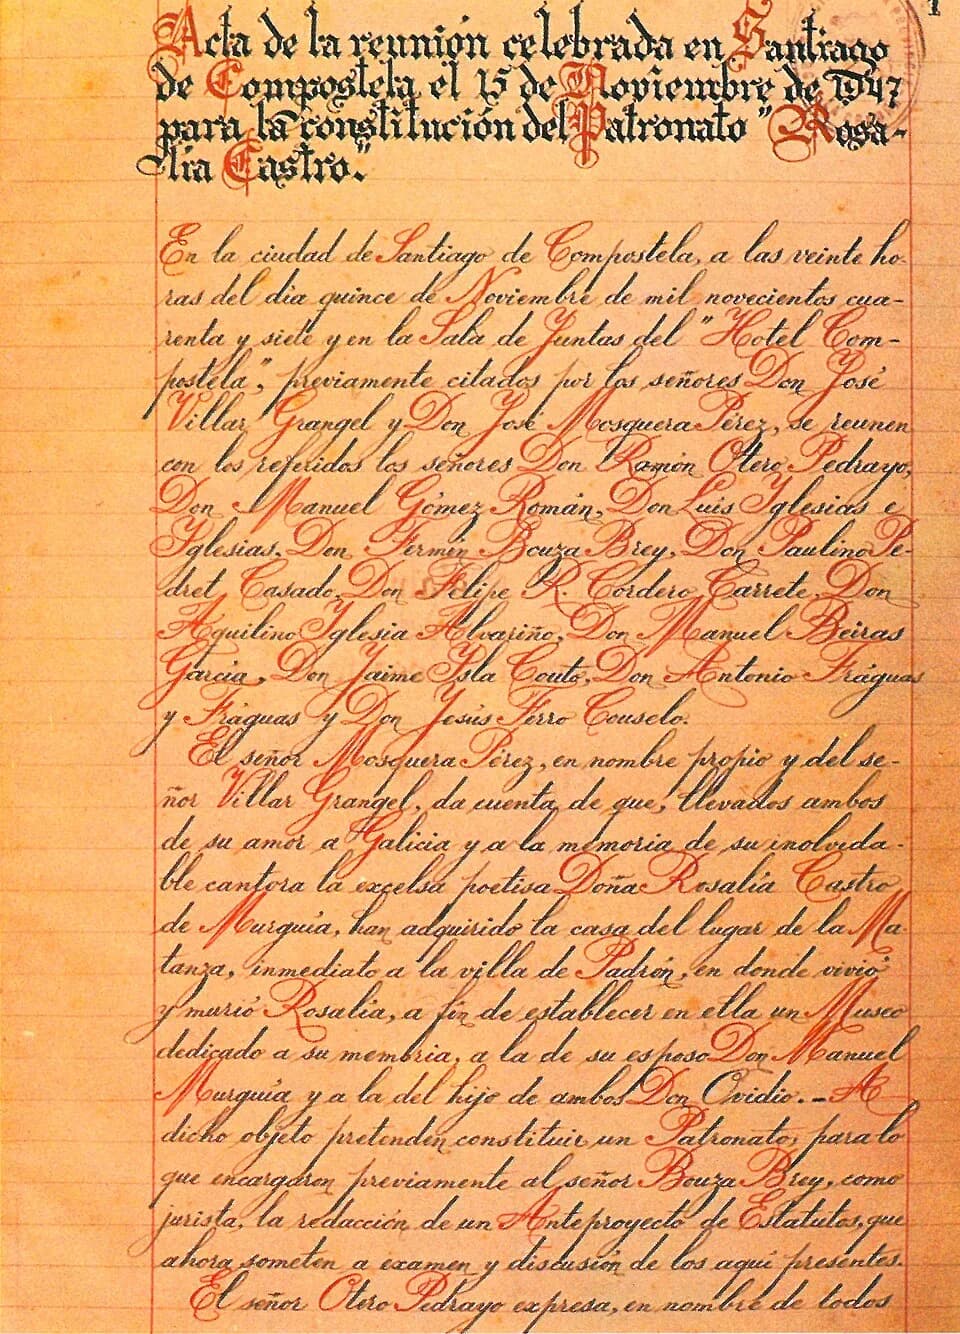 Acta de la reunión celebrada en Santiago
de Compostela el 15 de Noviembre de 1947
para la constitución del Patronato "Rosa-
lía Castro."
En la ciudad de Santiago de Compostela, a las veinte ho-
ras del dia quince de Noviembre de mil novecientos cua-
renta y siete y en la Sala de Juntas del "Hotel Com-
postela", previamente citados por los señores Don José
Villar Grangel y Don José Mosquera Pérez, se reunen
con los referidos los señores Don Ramón Otero Pedrayo,
Don Manuel Gómez Román, Don Luis Iglesias e
Iglesias, Don Fermín Bouza Brey, Don Paulino Pe-
dret Casado, Don Felipe R. Cordero Carrete, Don
Aquilino Iglesia Alvariño, Don Manuel Beiras
García, Don Jaime Isla Couto, Don Antonio Fráguas
y Fráguas y Don Jesús Ferro Couselo.
El señor Mosquera Pérez, en nombre propio y del se-
ñor Villar Grangel, da cuenta de que, llevados ambos
de su amor a Galicia y a la memoria de su inolvida-
ble cantora la excelsa poetisa Doña Rosalía Castro
de Murguía, han adquirido la casa del lugar de la Ma-
tanza, inmediato a la villa de Padrón, en donde vivió
y murió Rosalía, a fin de establecer en ella un Museo
dedicado a su memoria, a la de su esposo Don Manuel
Murguía y a la del hijo de ambos Don Ovidio. - A
dicho objeto pretenden constituir un Patronato, para lo
que encargaron previamente al señor Bouza Brey, como
jurista, la redacción de un Anteproyecto de Estatutos, que
ahora someten a examen y discusión de los aquí presentes.
El señor Otero Pedrayo expresa, en nombre de todos